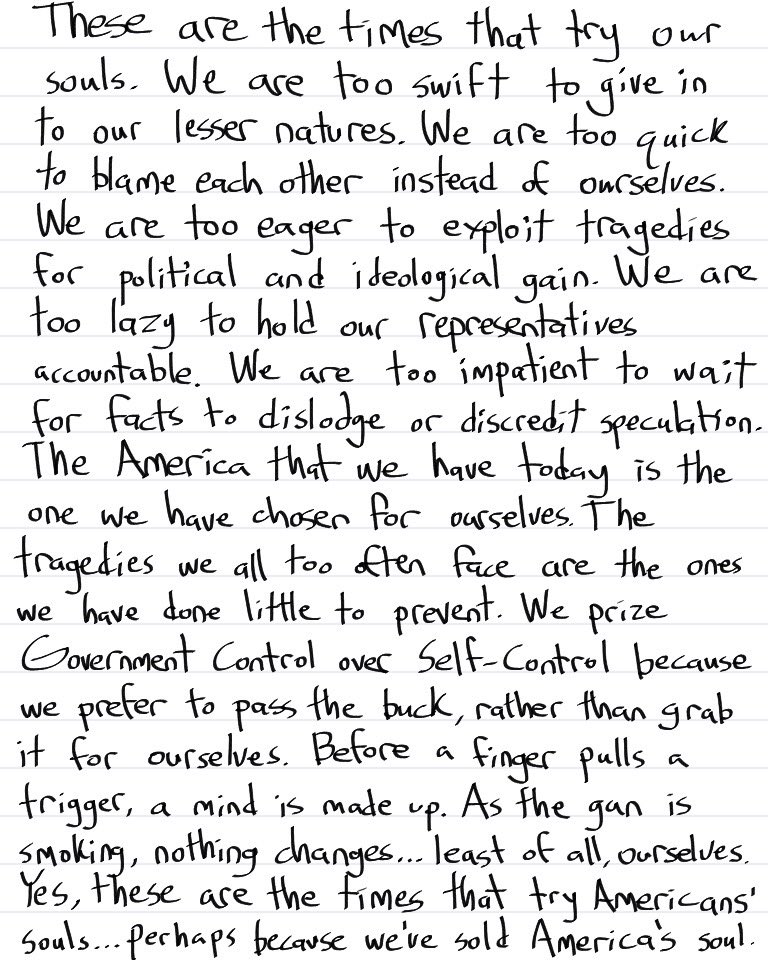 These are the times that try our
souls. We are too swift to give in
to our lesser natures. We are too quick
to blame each other instead of ourselves.
We are too eager to exploit tragedies
for political and ideological gain. We are
too lazy to hold our representatives
accountable. We are too impatient to wait
for facts to dislodge or discredit speculation.
The America that we have today is the
one we have chosen for ourselves. The
tragedies we all too often face are the ones
we have done little to prevent. We prize
Government Control over Self-Control because
we prefer to pass the buck, rather than grab
it for ourselves. Before a finger pulls a
trigger, a mind is made up. As the gun is
smoking, nothing changes... least of all, ourselves.
Yes, these are the times that try Americans'
souls...perhaps because we've sold America's soul.